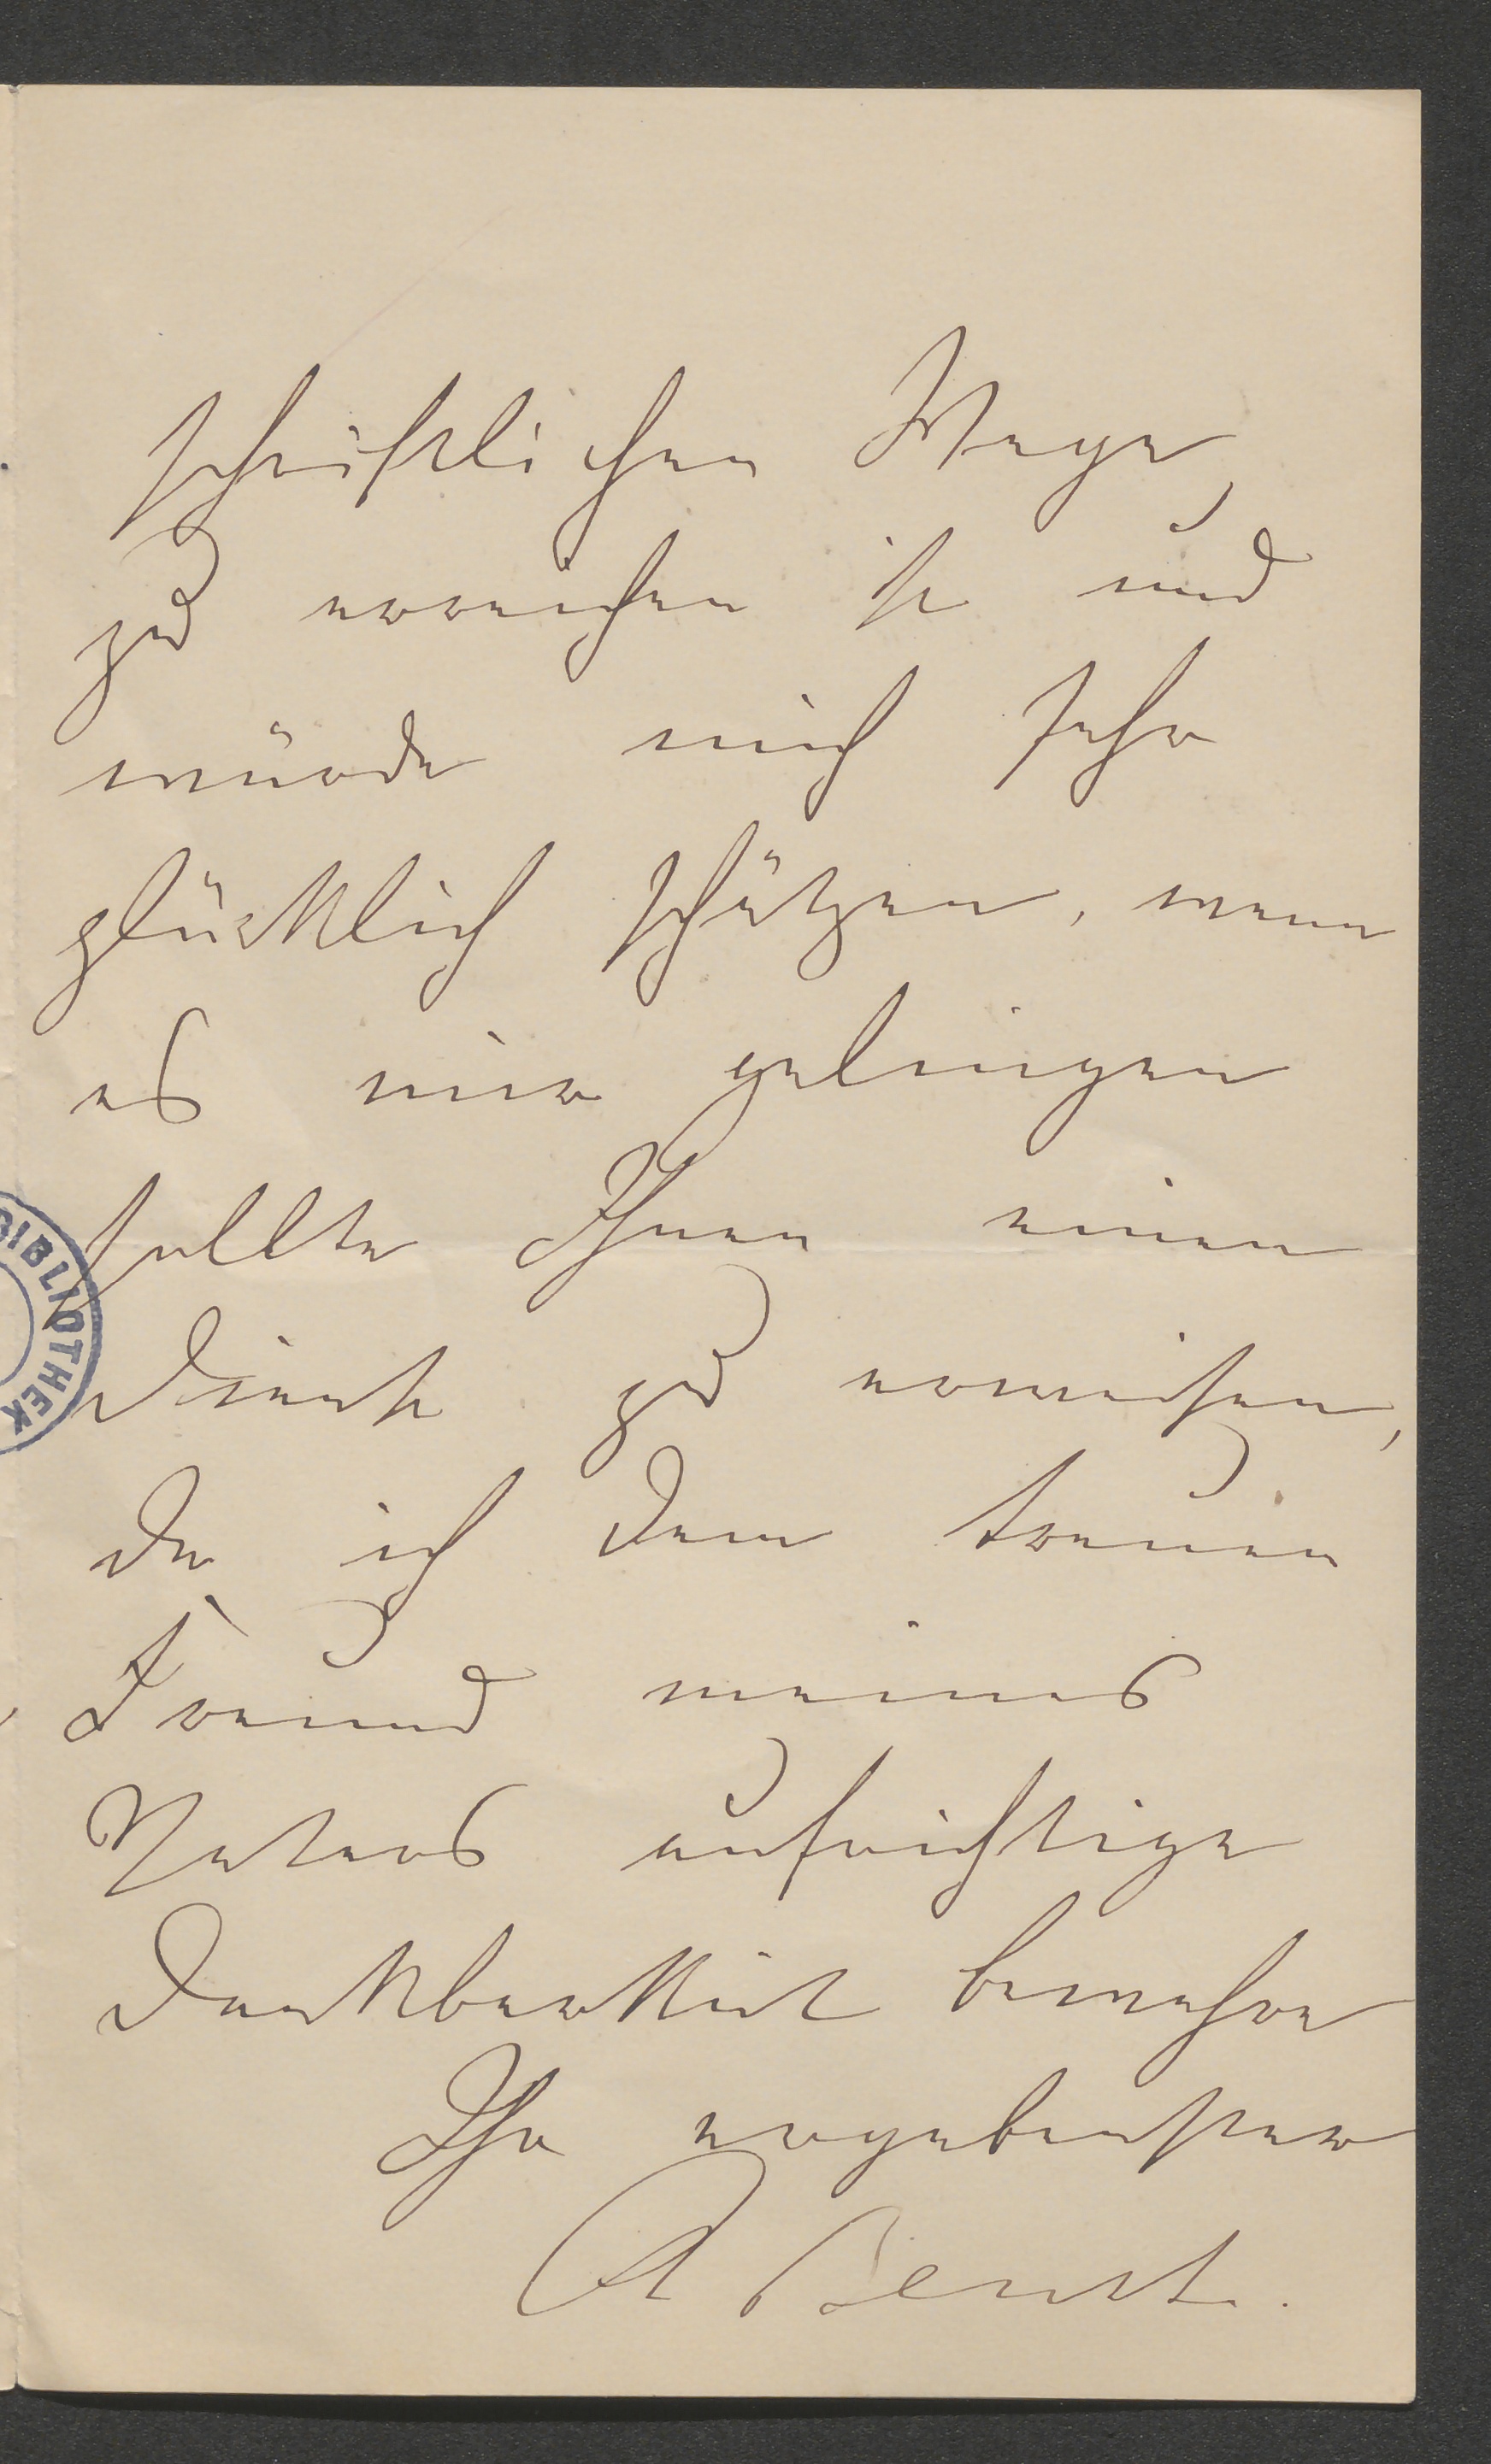 schriftlichen Wege
zu erreichen ist und
würde mich sehr
glücklich schätzen, wenn
es mir gelingen
sollte Ihnen einen
Dienst zu erweisen,
da ich dem treuen
Freund meines
Vaters aufrichtige
Dankbarkeit bewahre
Ihr ergebenster
BIBLIOTHEK